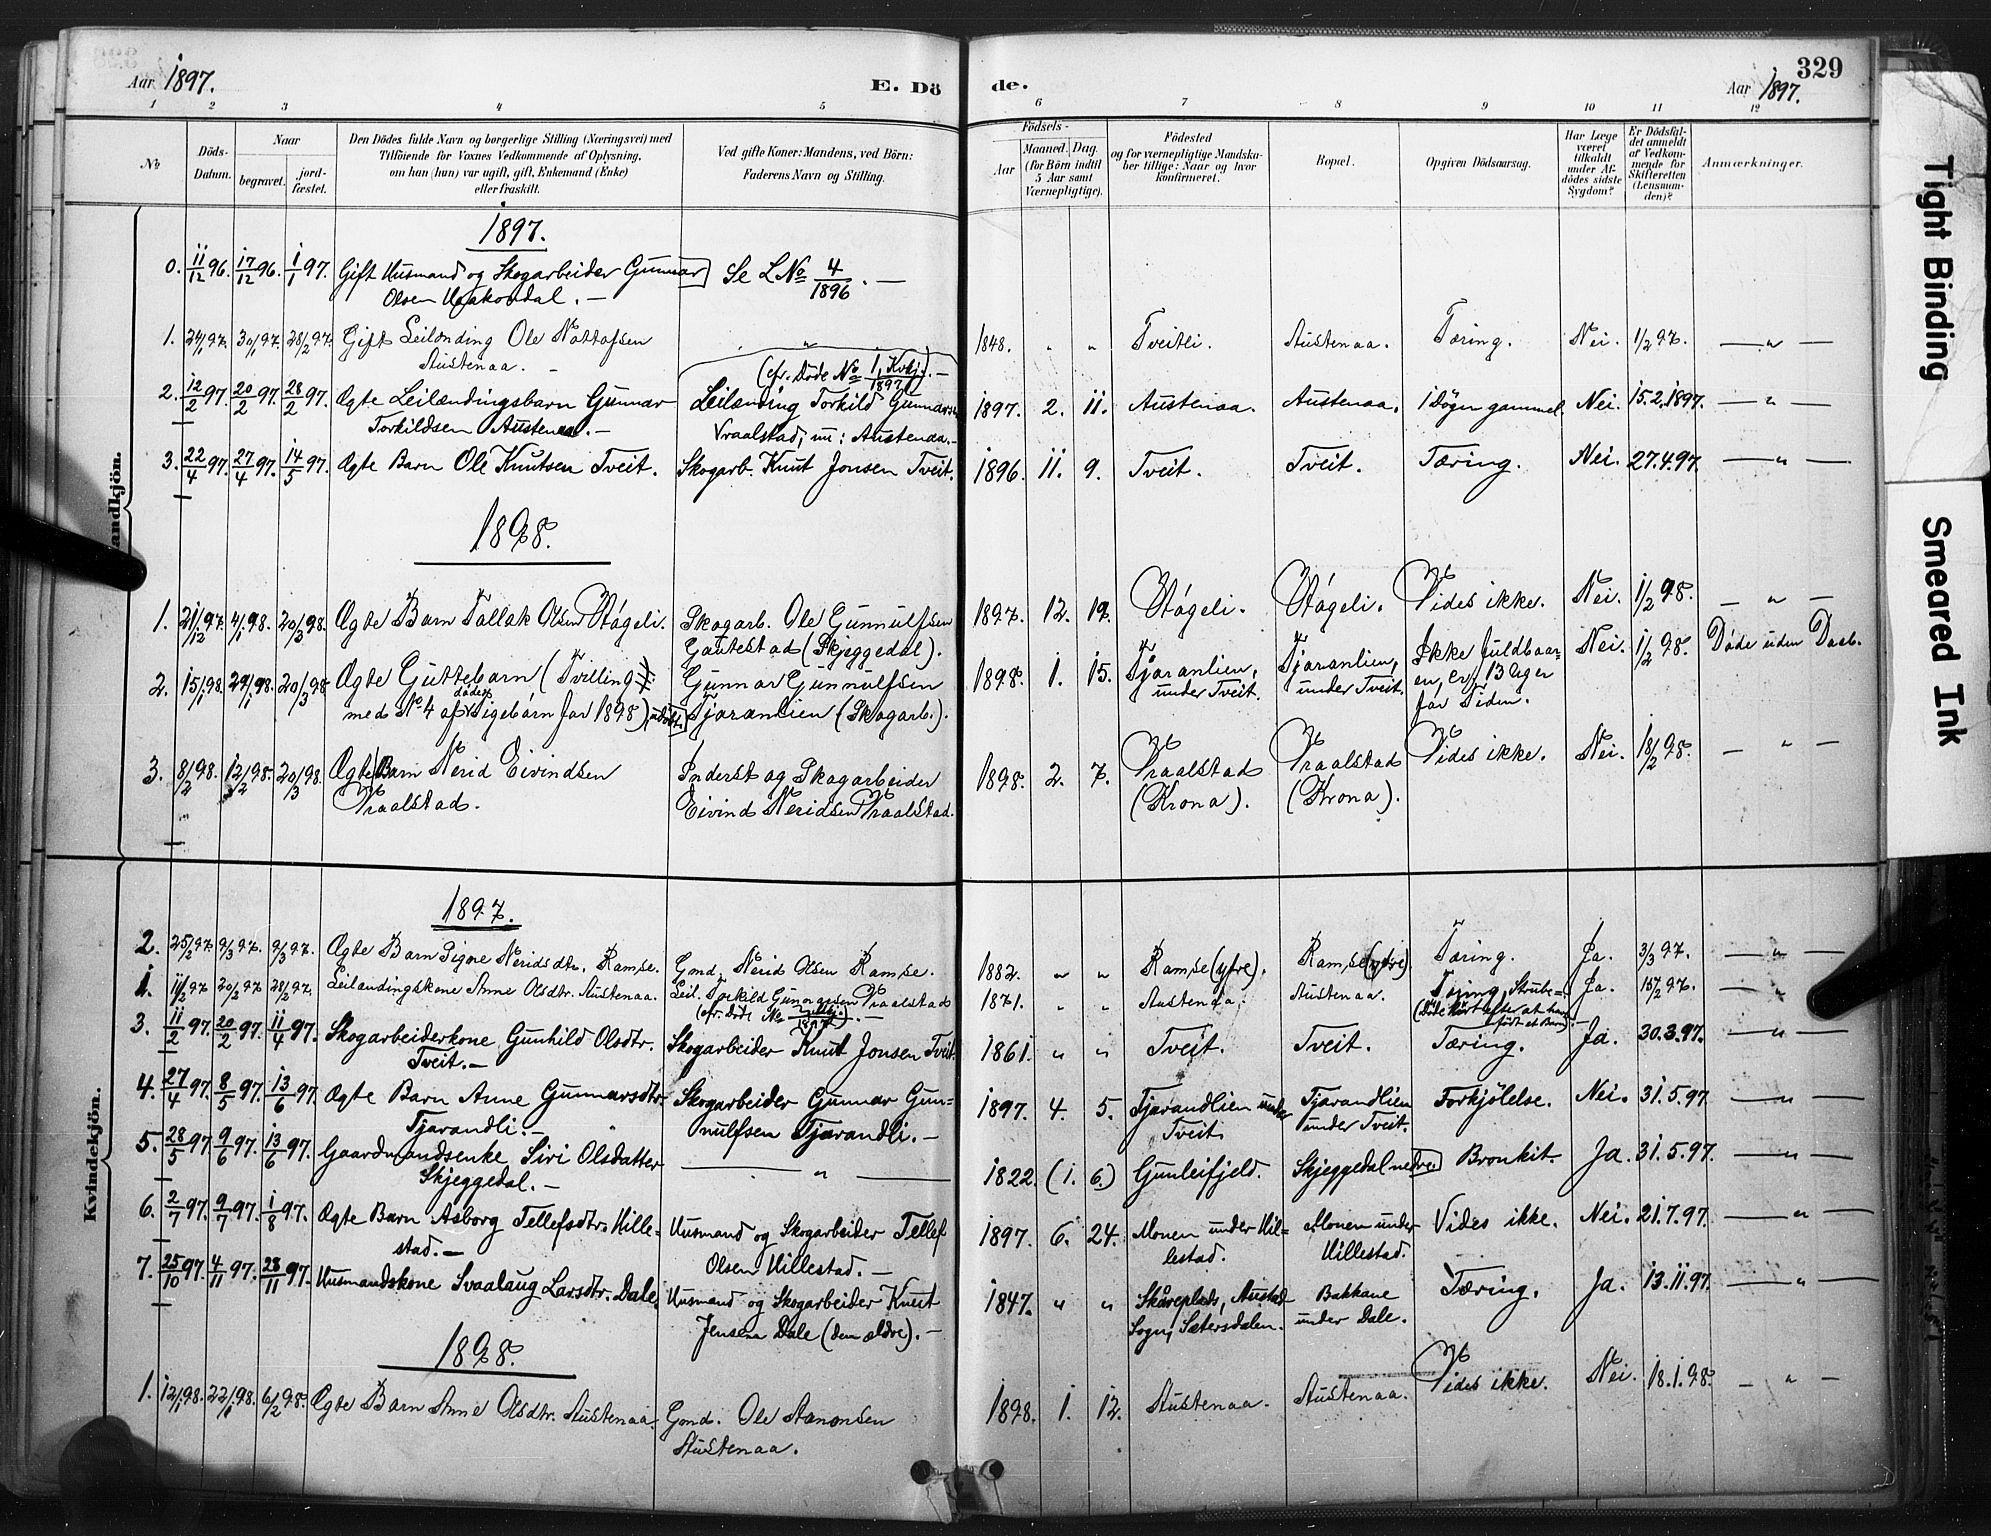 Aar 1897. E. Dö
de. Aar 1897. 329
1 2 3 4 5
6 7 8 9 10 11 12
No
Döds-
Datum.
Naar
begravet.
jord-
fæstet.
Den Dödes fulde Navn og borgerlige Stilling (Næringsvei) med
Tilföiende for Voxnes Vedkommende af Oplysning,
om han (hun) var ugift, gift, Enkemand (Enke)
eller fraskilt.
Ved gifte Koner: Mandens, ved Börn:
Faderens Navn og Stilling.
Födsels-
Aar
Maaned. Dag.
(for Börn indtil
5 Aar samt
Værnepligtige).
Födested
og for værnepligtige Mandska-
ber tillige: Naar og hvor
konfirmeret.
Bopæl.
Opgiven Dödsaarsag.
Har Læge
været
tilkaldt
under Af-
dödes sidste
Sygdom?
Er Dödsfal-
det anmeldt
af Vedkom-
mende for
Skifteretten
(Lensman-
den)?
Anmærkninger.
Tight Binding
Smeared Ink
andkjön.
1897.
0. 11/12 96. 17/12 96. 1/1 97. Gift Husmand og Skogarbeider Gunnar Se L No 4/1896. —
Olsen Haakondal. —
1. 24/1 97. 30/1 97. 28/2 97. Gift Leilænding Ole Nottofsen " 1848. " " Tveitli. Austenaa. Tæring. Nei. 1/2 97. — " —
Austenaa. —
(cfr. Døde No 1, Kvkj. 1897). —
2. 12/2 97. 20/2 97. 28/2 97. Ægte Leilændingsbarn Gunnar Leilænding Torkild Gunnarsen 1897. 2. 11. Austenaa. Austenaa. 1 Døgn gammel. Nei. 15.2.1897. — " —
Torkildsen Austenaa. — Vraalstad, nu: Austenaa. —
3. 22/4 97. 27/4 97. 14/5 97. Ægte Barn Ole Knutsen Tveit. Skogarb. Knut Jonsen Tveit. 1896. 11. 9. Tveit. Tveit. Tæring. Nei. 27.4.97. — " —
1898.
1. 21/12 97. 4/1 98. 20/3 98. Ægte Barn Tallak Olsen Høgeli. Skogarb. Ole Gunnulfsen 1897. 12. 19. Høgeli. Høgeli. Vides ikke. Nei. 1/2 98. — " —
Gautestad (Skjeggedal).
2. 15/1 98. 29/1 98. 20/3 98. Ægte Guttebarn (Tvilling Gunnar Gunnulfsen 1898. 1. 15. Tjaranlien, Tjaranlien, Ikke fuldbaar- Nei. 1/2 98. Døde uden Daab.
med No 4 af døde Pigebørn for 1898) Tjaranlien (Skogarb.). under Tveit. under Tveit. en, 13 Uger
for Tiden.
3. 8/2 98. 12/2 98. 20/3 98. Ægte Barn Nerid Eivindsen Inderst og Skogarbeider 1898. 2. 7. Vraalstad Vraalstad Vides ikke. Nei. 18/2 98. — " —
Vraalstad. Eivind Neridsen Vraalstad. (Krona). (Krona).
Kvindekjön.
1897.
2. 25/2 97. 9/3 97. 9/3 97. Ægte Barn Signe Neridsdtr. Ramse. Gmd. Nerid Olsen Ramse. 1882. " " Ramse (yfre). Ramse (yfre) Tæring. Ja. 3/3 97. — " —
1. 11/2 97. 20/2 97. 28/2 97. Leilændingskone Anne Olsdtr. Austenaa. Leil. Torkild Gunnarsen Vraalstad 1871. " " Austenaa. Austenaa. Tæring, Strube-. Ja. 15/2 97. — " —
(cfr. Døde No 1897). — (Døde kort efter at have
født et Barn). —
3. 11/2 97. 20/2 97. 11/4 97. Skogarbeiderkone Gunhild Olsdtr. Skogarbeider Knut Jonsen Tveit. 1861. " " Tveit. Tveit. Tæring. Ja. 30.3.97. — " —
Tveit. —
4. 27/4 97. 8/5 97. 13/6 97. Ægte Barn Anne Gunnarsdtr. Skogarbeider Gunnar Gun- 1897. 4. 5. Tjarandlien under Tjarandlien Forkjølelse. Nei. 31.5.97. — " —
Tjarandli. — nulfsen Tjarandli. — Tveit. under Tveit.
5. 28/5 97. 9/6 97. 13/6 97. Gaardmandsenke Siri Olsdatter — " — 1822. (1. 6.) Gunleifjeld. Skjeggedal nedre. Bronkit. Ja. 31.5.97. — " —
Skjeggedal. —
6. 2/7 97. 9/7 97. 1/8 97. Ægte Barn Asborg Tellefsdtr. Hille- Husmand og Skogarbeider Tellef 1897. 6. 24. Monen under Hil- Monen under Vides ikke. Nei. 21.7.97. — " —
stad. — Olsen Hillestad. — lestad. Hillestad.
7. 25/10 97. 4/11 97. 28/11 97. Husmandskone Svaalaug Larsdtr. Dale. Husmand og Skogarbeider Knut 1847. " " Skåreplads, Austad Bakkane Tæring. Ja. 13.11.97. — " —
Jensen Dale (den ældre). — Sogn, Sætersdalen. under Dale.
1898.
1. 12/1 98. 22/1 98. 6/2 98. Ægte Barn Anne Olsdtr. Austenaa. Gmd. Ole Aanonsen 1898. 1. 12. Austenaa. Austenaa. Vides ikke. Nei. 18.1.98. — " —
Austenaa.